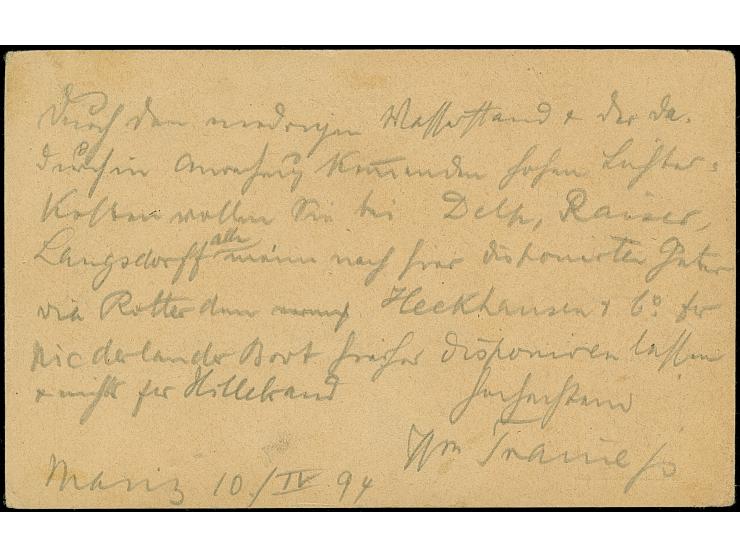 Durch den niedrigen Wasserstand & der da-
durch in Anrechnung kommenden hohen Lichter-
Kosten wollen Sie bei Delp, Raiser,
Langsdorff alle nach hier disponirten Güter
via Rotterdam Heckhausen & Co. per
Niederlander Boot hierher disponiren lassen
& nicht per Hillebrand Hochachtend
Wm
Mainz 10/IV 94